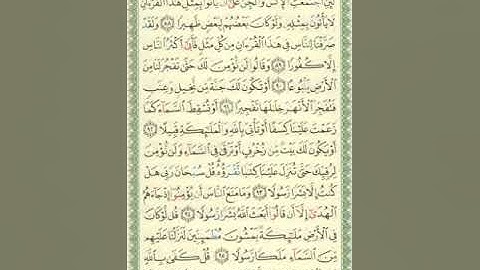 لَّئِنِ ٱجْتَمَعَتِ ٱلْإِنسُ وَٱلْجِنُّ عَلَىٰٓ أَن يَأْتُوا۟ بِمِثْلِ هَٰذَا ٱلْقُرْءَانِ
لَا يَأْتُونَ بِمِثْلِهِۦ وَلَوْ كَانَ بَعْضُهُمْ لِبَعْضٍ ظَهِيرًا ٨٨ وَلَقَدْ
صَرَّفْنَا لِلنَّاسِ فِى هَٰذَا ٱلْقُرْءَانِ مِن كُلِّ مَثَلٍ فَأَبَىٰٓ أَكْثَرُ ٱلنَّاسِ
إِلَّا كُفُورًا ٨٩ وَقَالُوا۟ لَن نُّؤْمِنَ لَكَ حَتَّىٰ تَفْجُرَ لَنَا مِنَ
ٱلْأَرْضِ يَنۢبُوعًا ٩٠ أَوْ تَكُونَ لَكَ جَنَّةٌ مِّن نَّخِيلٍ وَعِنَبٍ
فَتُفَجِّرَ ٱلْأَنْهَٰرَ خِلَٰلَهَا تَفْجِيرًا ٩١ أَوْ تُسْقِطَ ٱلسَّمَآءَ كَمَا
زَعَمْتَ عَلَيْنَا كِسَفًا أَوْ تَأْتِىَ بِٱللَّهِ وَٱلْمَلَٰٓئِكَةِ قَبِيلًا ٩٢
أَوْ يَكُونَ لَكَ بَيْتٌ مِّن زُخْرُفٍ أَوْ تَرْقَىٰ فِى ٱلسَّمَآءِ وَلَن نُّؤْمِنَ
لِرُقِيِّكَ حَتَّىٰ تُنَزِّلَ عَلَيْنَا كِتَٰبًا نَّقْرَؤُهُۥ قُلْ سُبْحَانَ رَبِّى هَلْ
كُنتُ إِلَّا بَشَرًا رَّسُولًا ٩٣ وَمَا مَنَعَ ٱلنَّاسَ أَن يُؤْمِنُوٓا۟ إِذْ جَآءَهُمُ
ٱلْهُدَىٰٓ إِلَّآ أَن قَالُوٓا۟ أَبَعَثَ ٱللَّهُ بَشَرًا رَّسُولًا ٩٤ قُل لَّوْ كَانَ
فِى ٱلْأَرْضِ مَلَٰٓئِكَةٌ يَمْشُونَ مُطْمَئِنِّينَ لَنَزَّلْنَا عَلَيْهِم
مِّنَ ٱلسَّمَآءِ مَلَكًا رَّسُولًا ٩٥ قُلْ كَفَىٰ بِٱللَّهِ